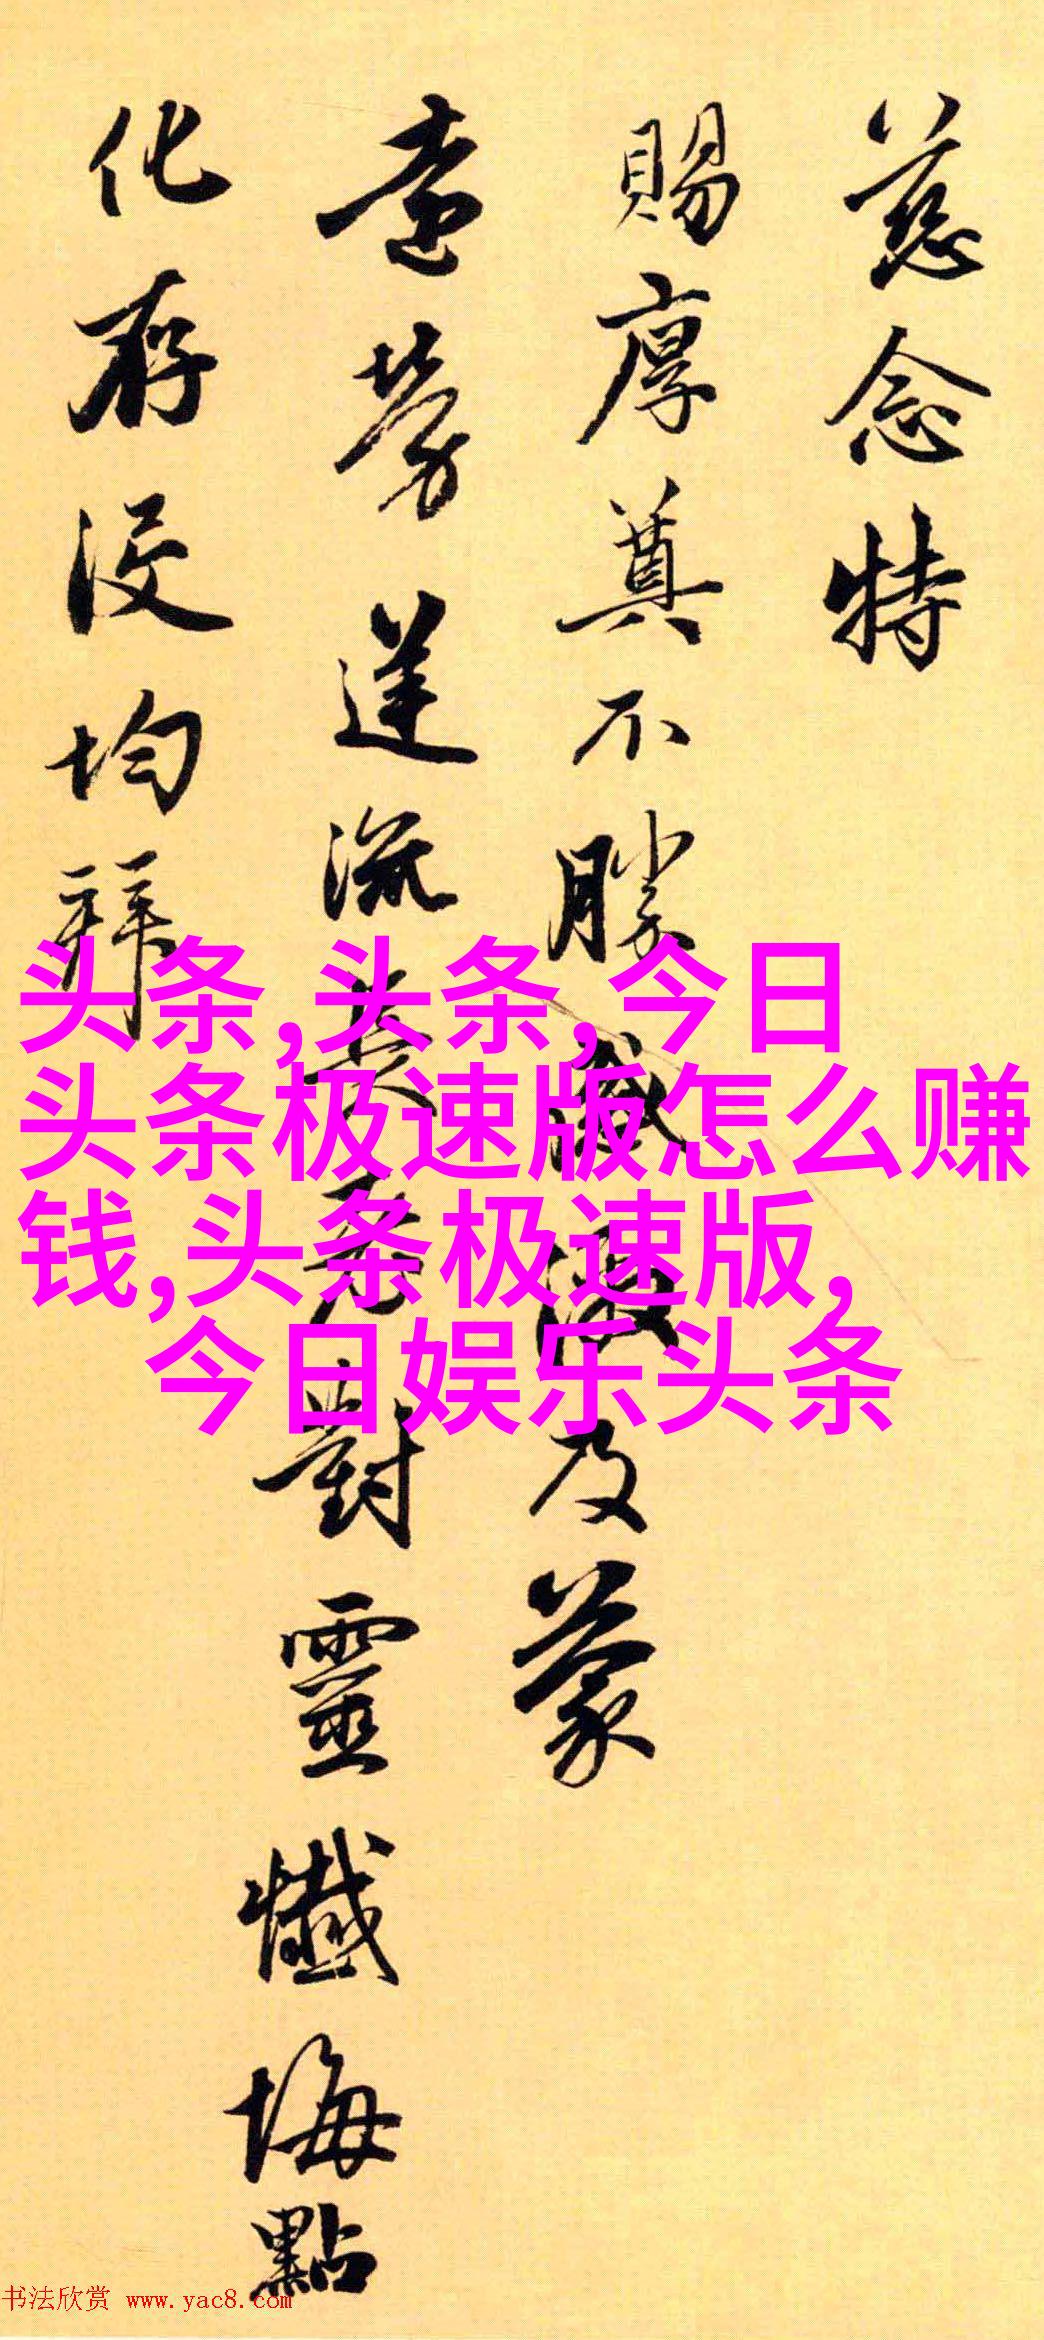 慈念特
賜厚奠不勝感激及蒙
遠勞蓮流美意對靈懴悔點
化存没均拜
头条,头条,今日
头条极速版怎么赚
钱,头条极速版,
今日娱乐头条
书法欣赏 www.yac8.com